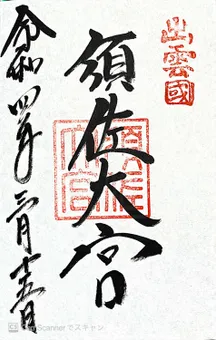 出雲國
須佐大宮
令和四年三月十五日
CamScanner でスキャン